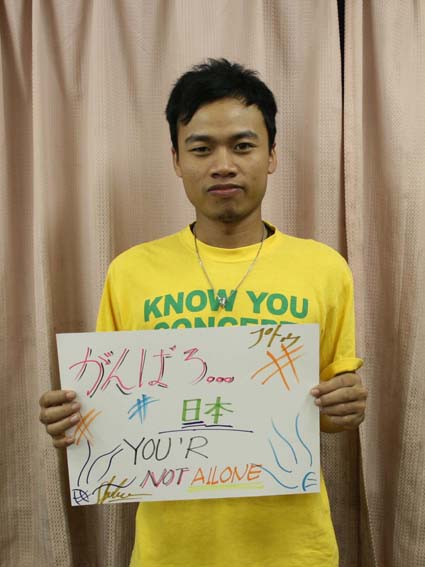 KNOW YOU
CONCEPT
プトゥ
がんばろ...
日本
YOU'R
NOT AILONE